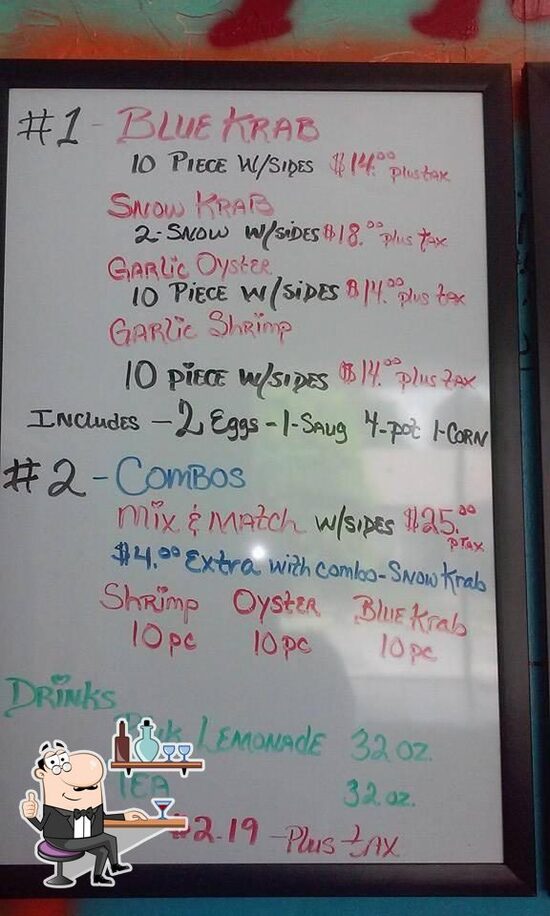 #1 - BLUE KRAB
10 PIECE W/SIDES $14.00 plus tax
SNOW KRAB
2-SNOW W/SIDES $18.00 plus tax
GARLIC OYSTER
10 PIECE W/SIDES $14.00 plus tax
GARLIC SHRIMP
10 PIECE W/SIDES $14.00 plus tax
INCLUDES - 2 Eggs - 1-SAUG 4-POT 1-CORN
#2 - COMBOS
MIX & MATCH W/SIDES $25.00
PTAX
$4.00 Extra with combo - SNOW Krab
Shrimp OYSTER BLUE Krab
10 pc 10 pc 10 pc
DRINKS
LEMONADE 32 oz.
TEA 32 oz.
$2.19 - Plus tax